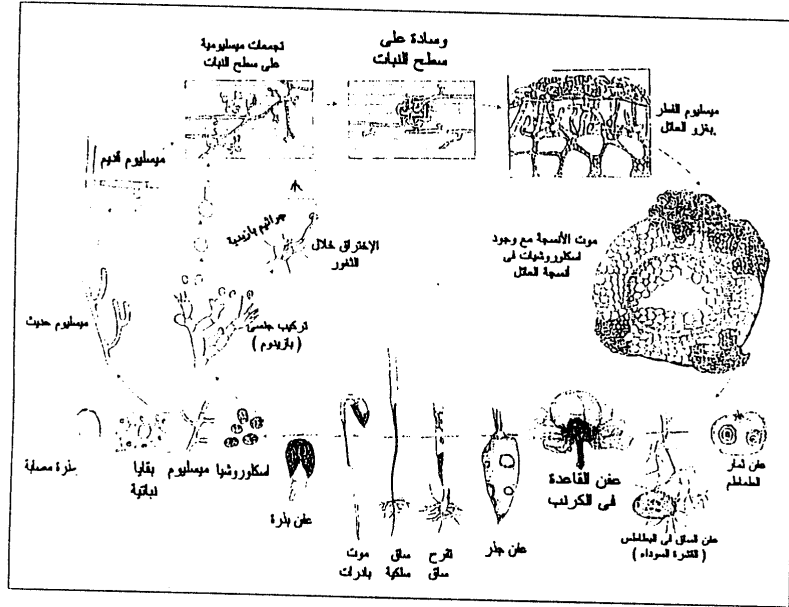 وسادة على
سطح النبات
تجمعات ميسليومية
على سطح النبات
ميسليوم الفطر
يغزو العائل
ميسليوم قديم
جراثيم بازيدية
الإختراق خلال
الثغور
موت الأنسجة مع وجود
اسكلوروشيات فى
أنسجة العائل
ميسليوم حديث
تركيب جنسى
( بازيديوم )
بذرة مصابة
بقايا
نباتية
ميسليوم
اسكلوروشيا
عفن بذرة
موت
بادرات
ساق
سلكية
تقرح
ساق
عفن جذر
عفن القاعدة
فى الكرنب
عفن الساق فى البطاطس
( القشرة السوداء )
عفن ثمار
الطماطم